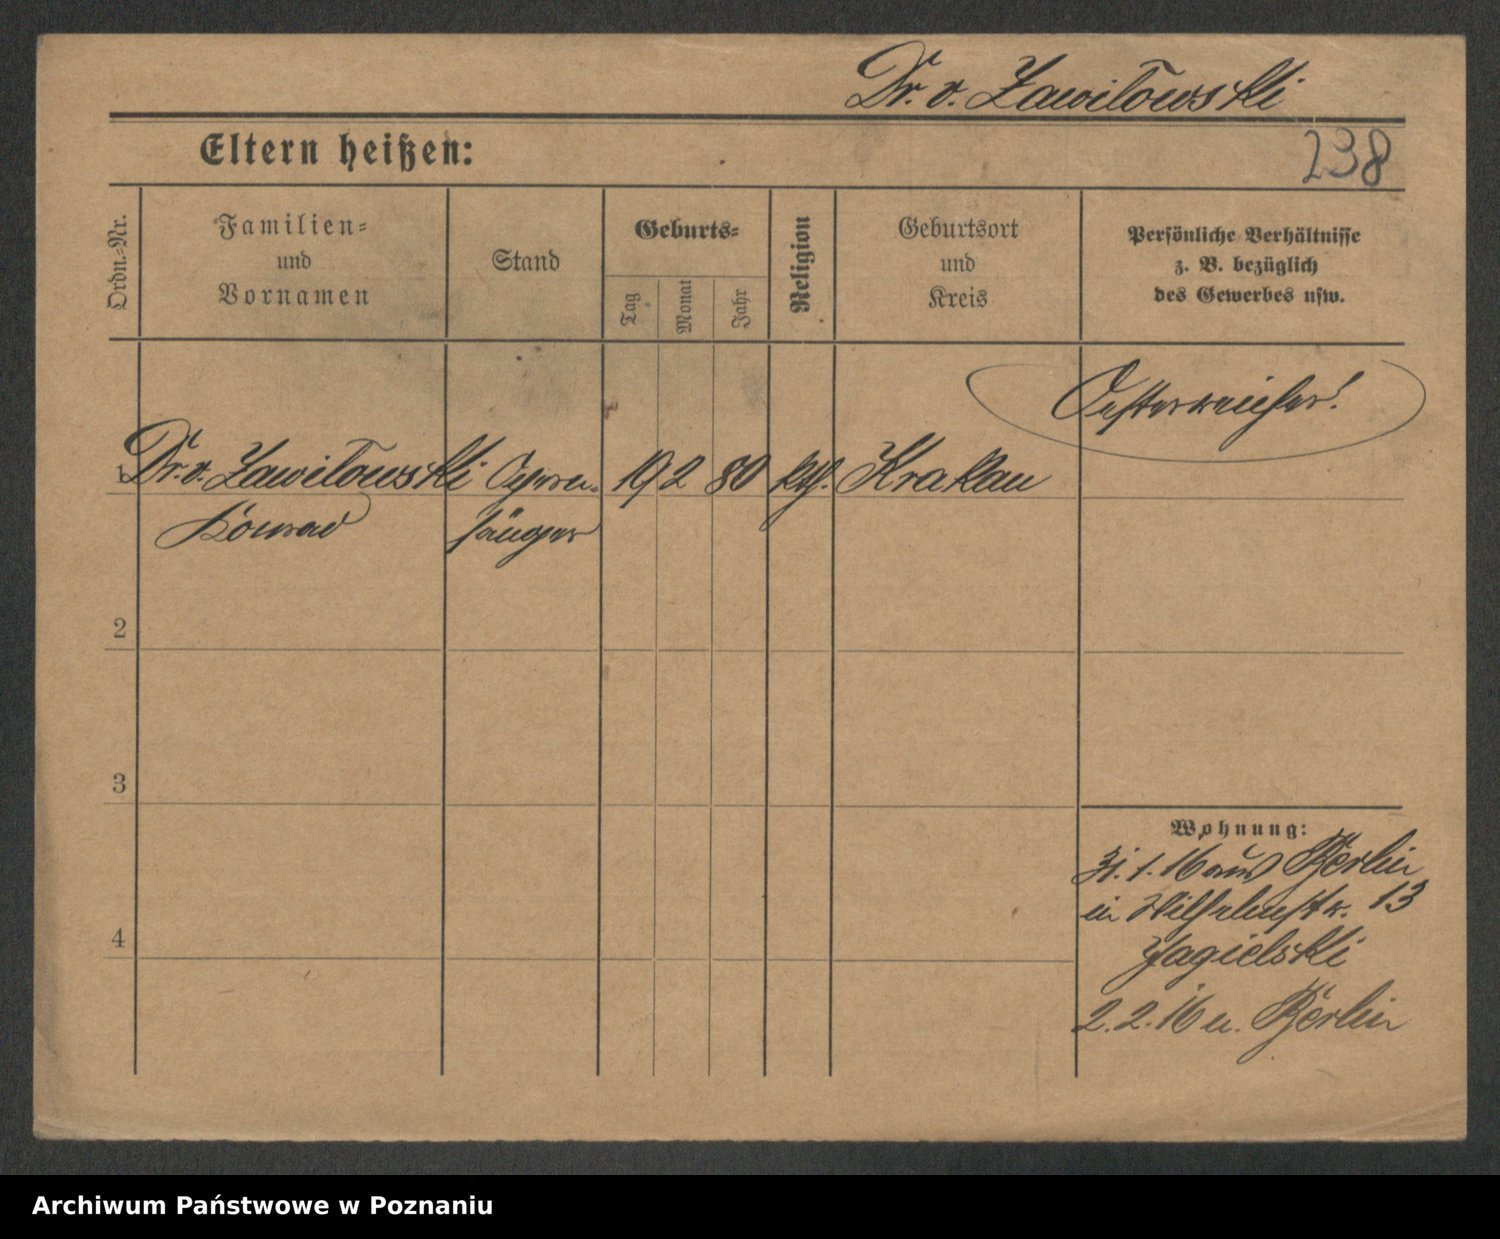 Dr. v. Zawiłowski
Eltern heißen:
238
Ordn.-Nr.
Familien-
und
Vornamen
Stand
Geburts-
Tag
Monat
Jahr
Religion
Geburtsort
und
Kreis
Persönliche Verhältnisse
z. B. bezüglich
des Gewerbes usw.
Oesterreicher!
1 Dr. v. Zawiłowski Opern- 19 2 80 kth. Krakau
Konrad sänger
2
3
4
Wohnung:
31.1.16 aus Berlin
in Wilhelmstr. 13
Jagielski
2.2.16 n. Berlin
Archiwum Państwowe w Poznaniu